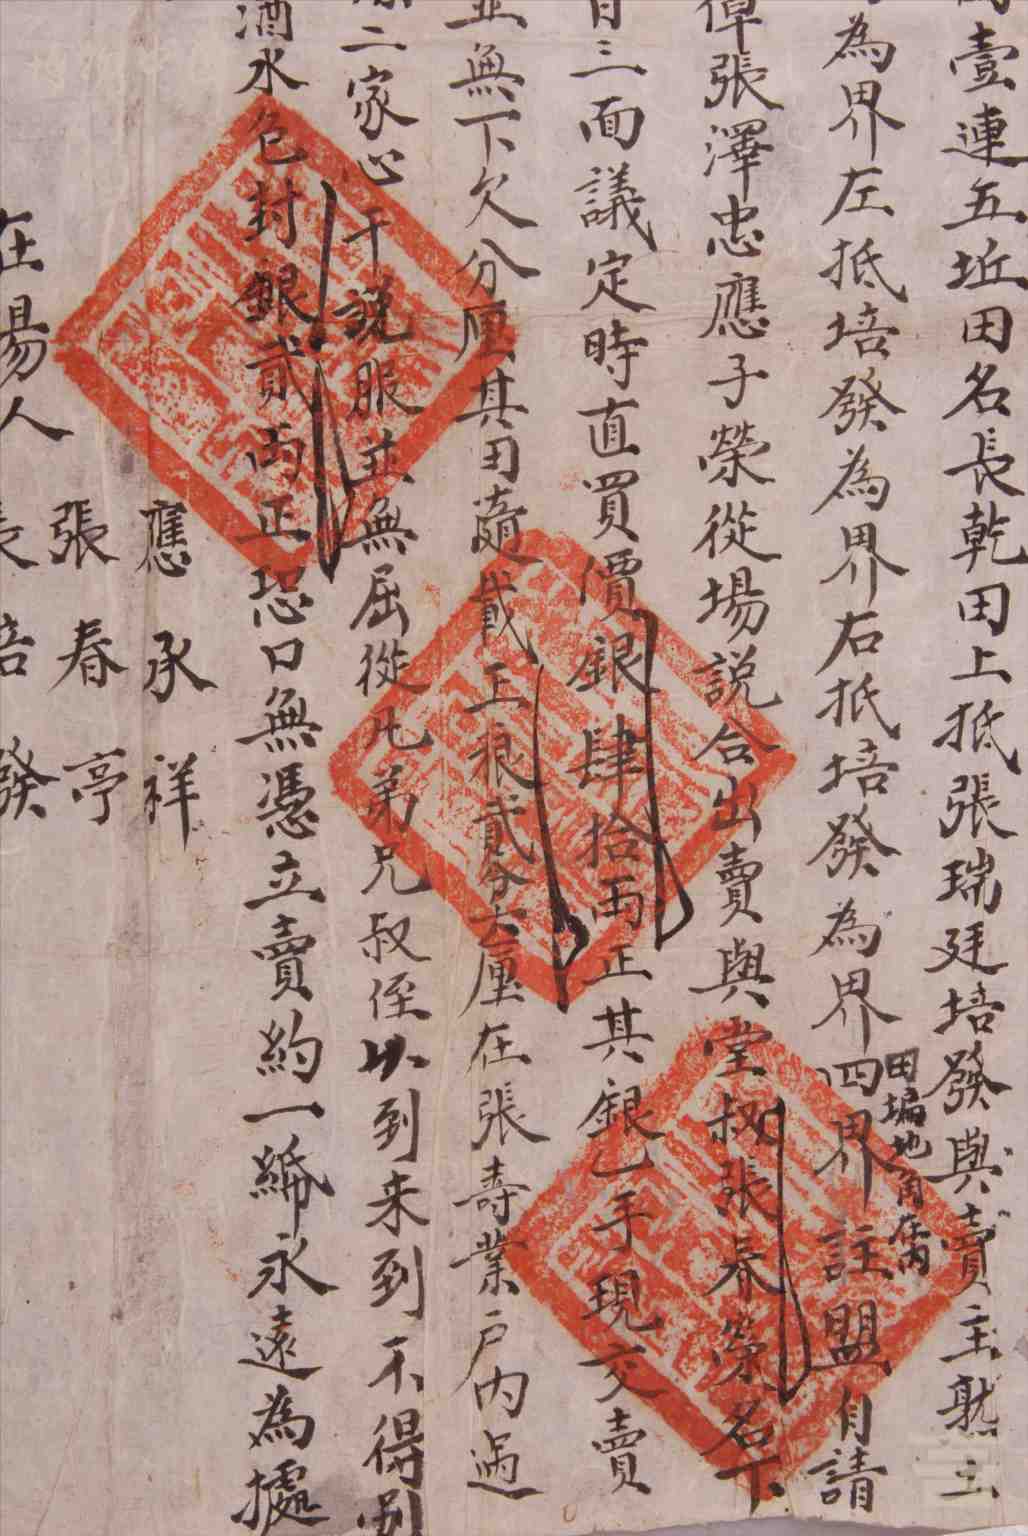 壹連五坵田名長乾田上抵張瑞廷培發與賣主
田塥地角在內
為界左抵培發為界右抵培發為界四界註盟自請
張澤忠應子榮從場説合出賣與堂叔張春榮名下
三面議定時直買價銀肆拾両正其銀乙手現交賣
並無下欠分厘其田隨載正粮貳分六厘在張壽業户內過
二家心干説服並無屈從凡弟兄叔侄以到来到不得别
酒水包封銀貳両正恐口無憑立賣約一紙永遠為據
應承祥
張春亭
在場人 張培發